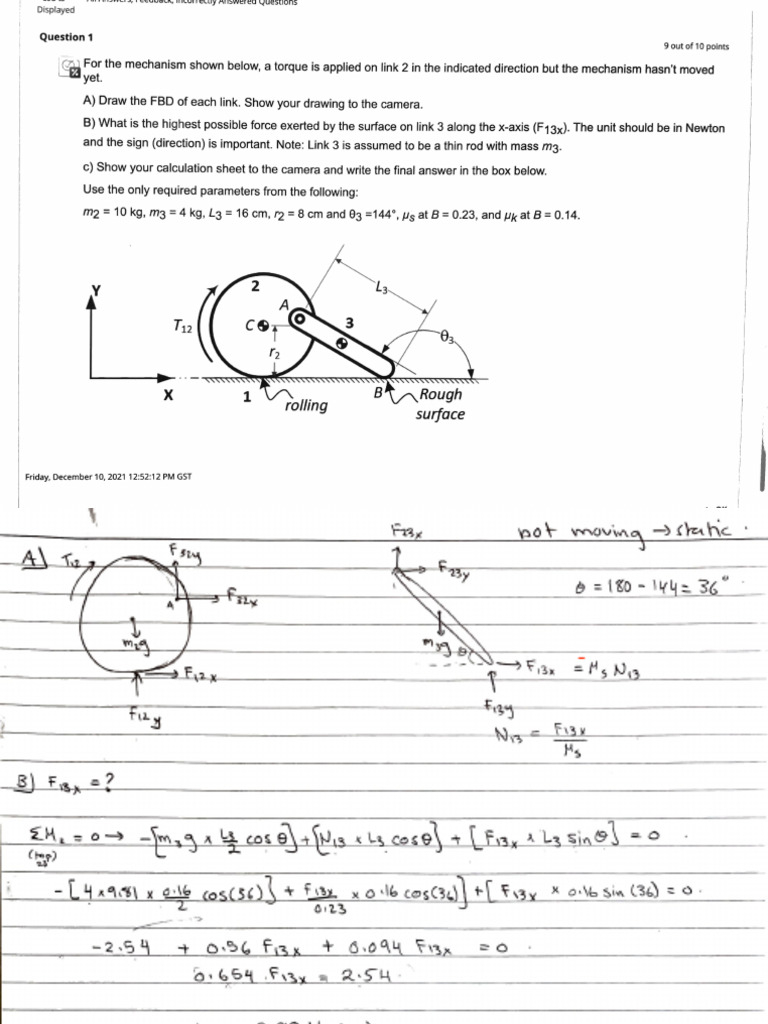 Displayed
Question 1
9 out of 10 points
For the mechanism shown below, a torque is applied on link 2 in the indicated direction but the mechanism hasn't moved
yet.
A) Draw the FBD of each link. Show your drawing to the camera.
B) What is the highest possible force exerted by the surface on link 3 along the x-axis (F13x). The unit should be in Newton
and the sign (direction) is important. Note: Link 3 is assumed to be a thin rod with mass m3.
c) Show your calculation sheet to the camera and write the final answer in the box below.
Use the only required parameters from the following:
m2 = 10 kg, m3 = 4 kg, L3 = 16 cm, r2 = 8 cm and θ3 =144°, μs at B = 0.23, and μk at B = 0.14.
Y
2
L3
A
T12
C
3
θ3
r2
X
1
rolling
B
Rough
surface
Friday, December 10, 2021 12:52:12 PM GST
not moving → static.
A)
T12
F32y
F23x
F23y
θ = 180 - 144 = 36°
A
F32x
m2g
m3g
θ
F12x
F13x = μs N13
F12y
F13y
N13 = F13x / μs
B) F13x = ?
ΣM2 = 0 → -[m3g x L3/2 cos θ] + [N13 x L3 cos θ] + [F13x x L3 sin θ] = 0.
-[4 x 9.81 x 0.16/2 cos(36)] + F13x/0.23 x 0.16 cos(36)] + [F13x x 0.16 sin (36) = 0.
-2.54 + 0.56 F13x + 0.094 F13x = 0.
0.654 . F13x = 2.54.